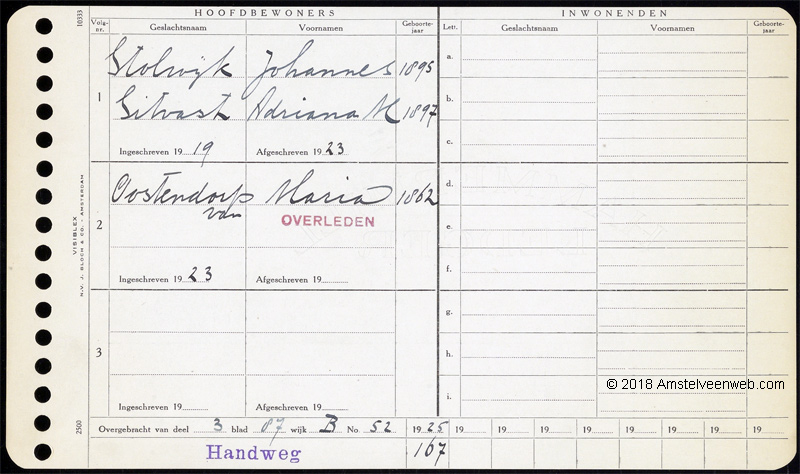 HOOFDBEWONERS
INWONENDEN
10333
Volg-nr. Geslachtsnaam Voornamen Geboorte-jaar
Letr. Geslachtsnaam Voornamen Geboorte-jaar
1 Stolwijk Johannes 1895
Sitvast Adriana M 1897
Ingeschreven 19 19 Afgeschreven 19 23
2 Oostendorp Maria 1862
van
OVERLEDEN
Ingeschreven 19 23 Afgeschreven 19
3
Ingeschreven 19 Afgeschreven 19
a.
b.
c.
d.
e.
f.
g.
h.
i.
VISIBLEX
N.V. J. BLOCH & CO. - AMSTERDAM
2500
© 2018 Amstelveenweb.com
Overgebracht van deel 3 blad 87 wijk B No. 52 1925 19 19 19 19 19 19 19 19
Handweg 167